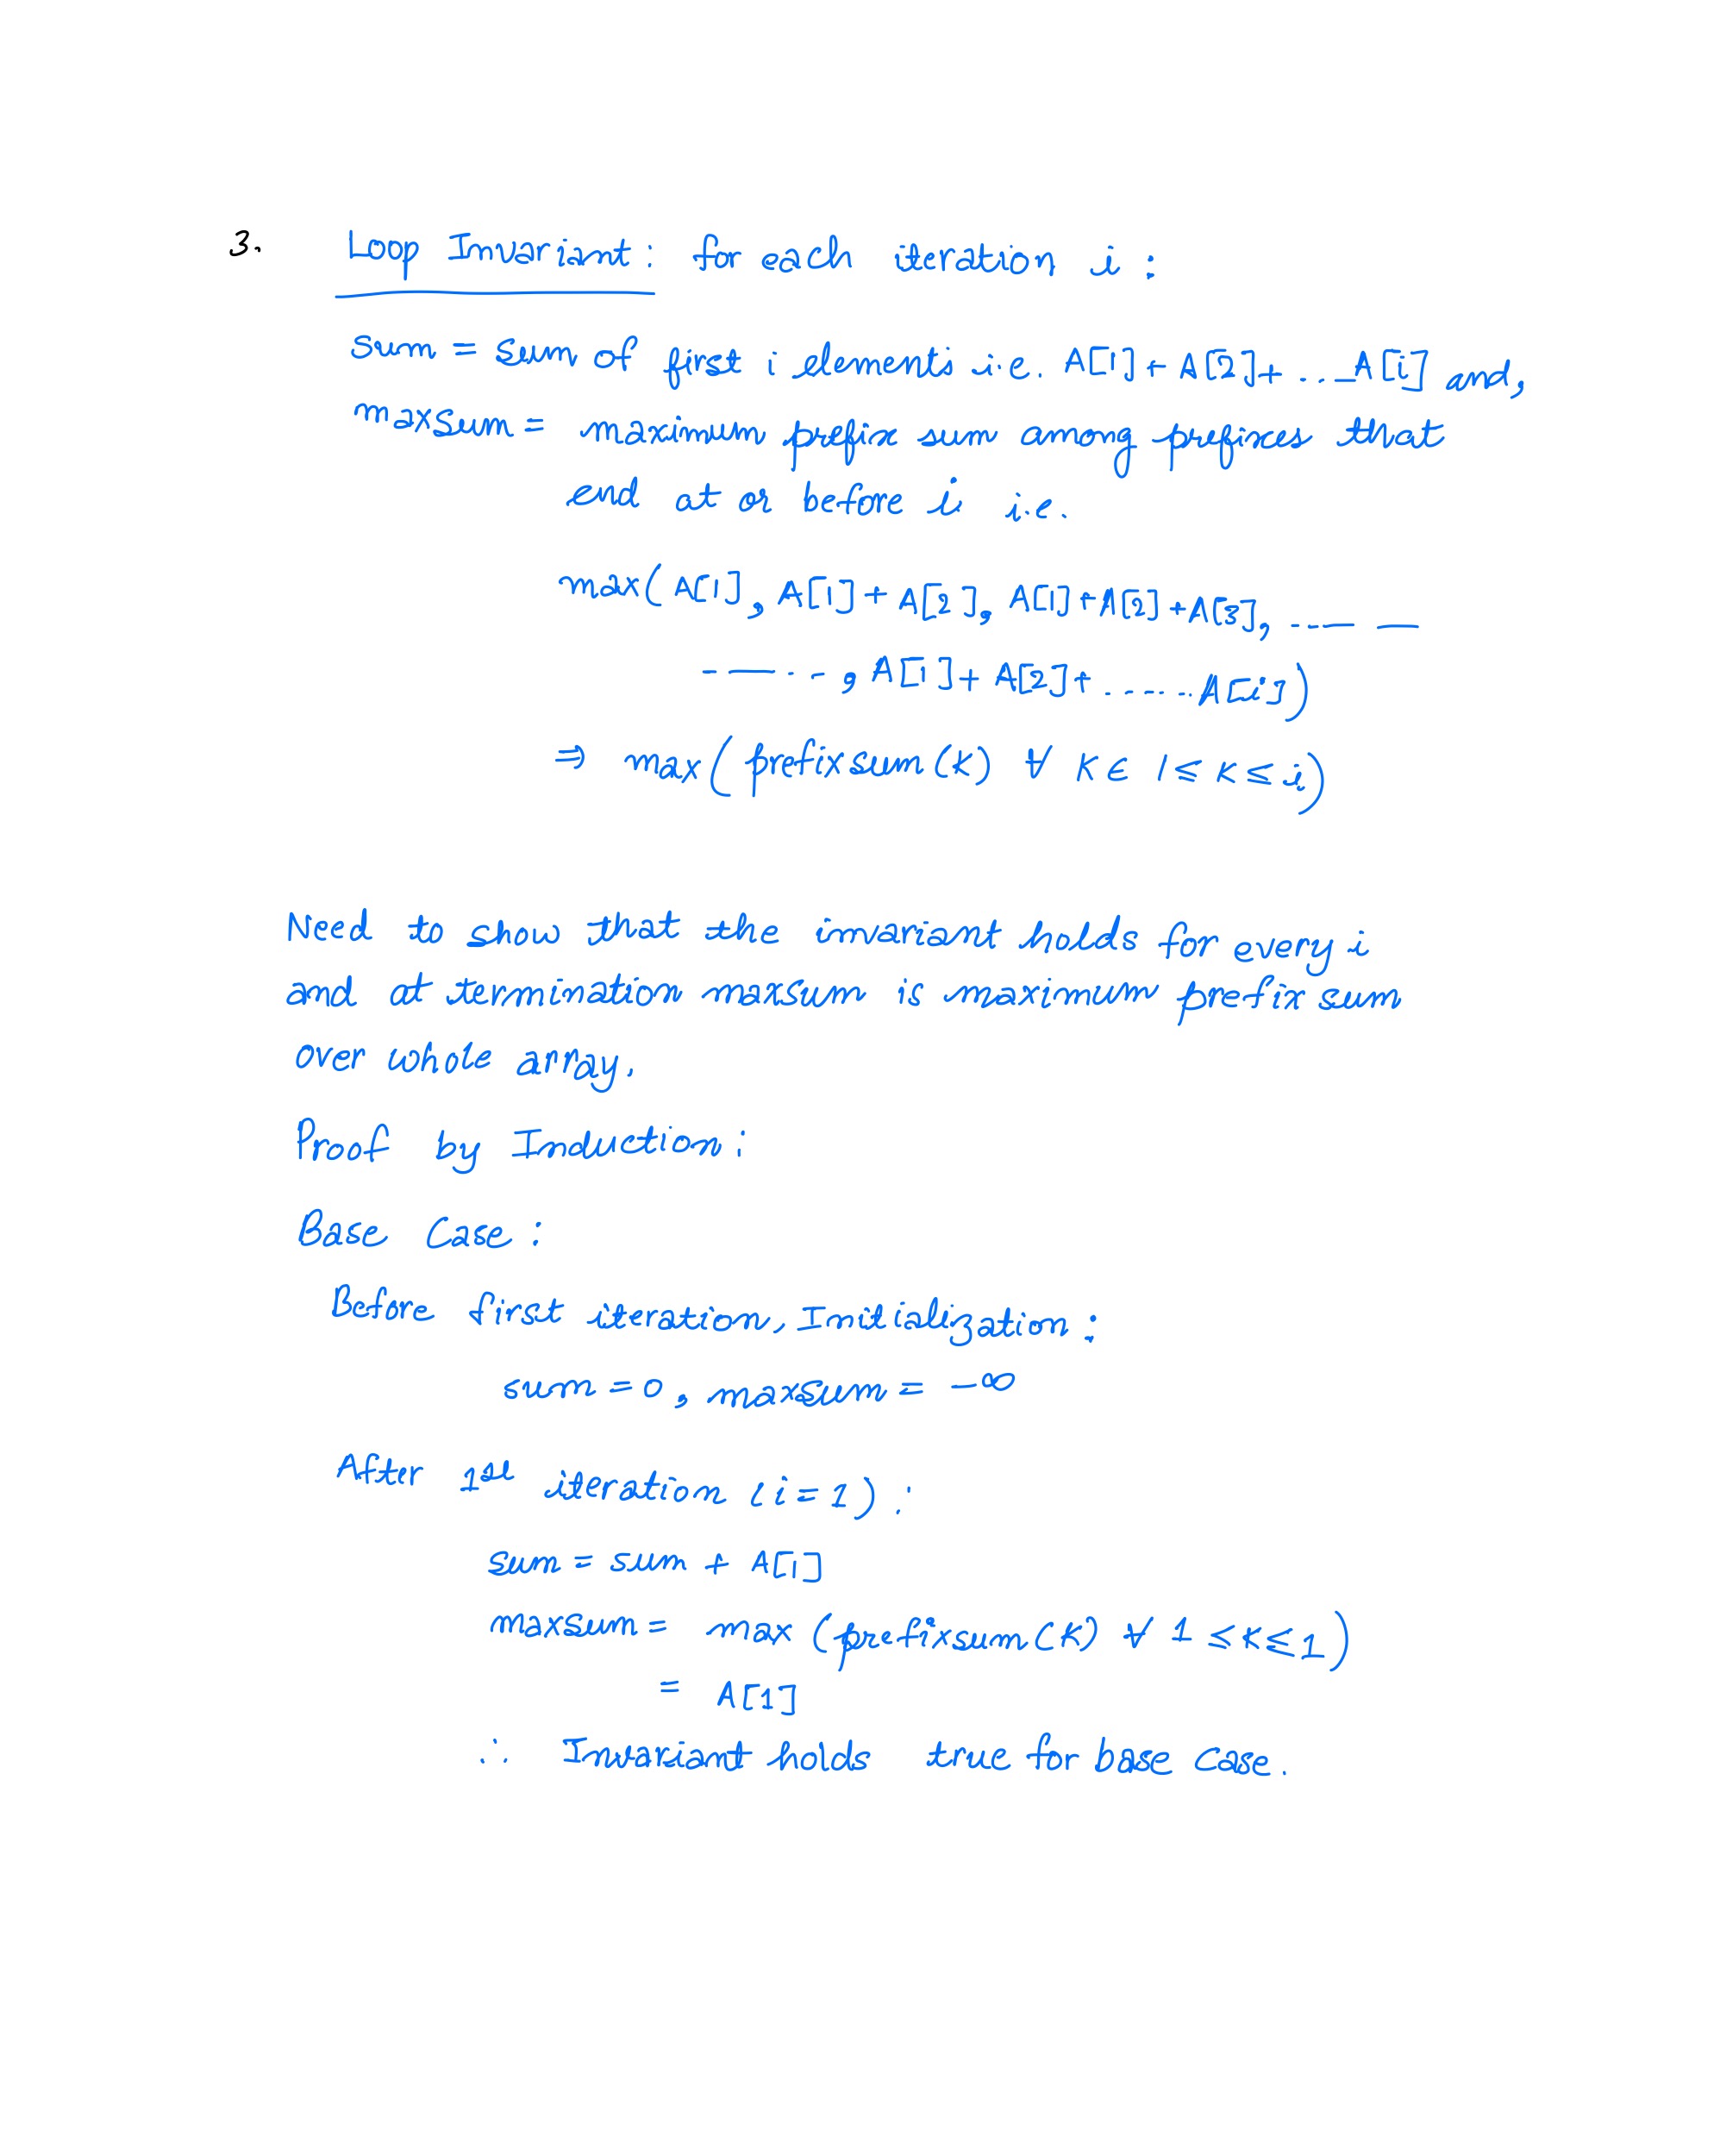 3. Loop Invariant: for each iteration i :
sum = sum of first i elements i.e. A[1] + A[2] + ... A[i] and,
maxsum = maximum prefix sum among prefixes that
end at or before i i.e.
max( A[1], A[1] + A[2], A[1] + A[2] + A[3], .....
....., A[1] + A[2] + ...... A[i])
⇒ max( prefixsum(K) ∀ K ∈ 1 ≤ K ≤ i)
Need to show that the invariant holds for every i
and at termination maxsum is maximum prefix sum
over whole array.
Proof by Induction:
Base Case :
Before first iteration, Initialization :
sum = 0, maxsum = -∞
After 1st iteration (i = 1) :
sum = sum + A[1]
maxsum = max (prefixsum(K) ∀ 1 ≤ K ≤ 1)
= A[1]
∴ Invariant holds true for base case.